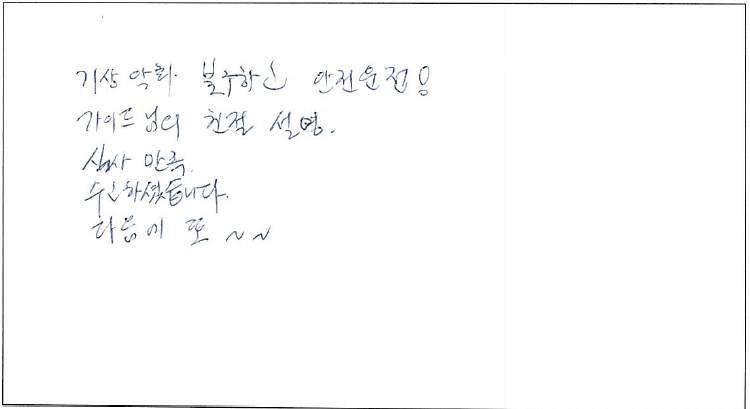 기상악화 불구하고 안전운전!
가이드님의 친절 설명.
식사 만족.
수고하셨습니다.
다음에 또 ~ ~